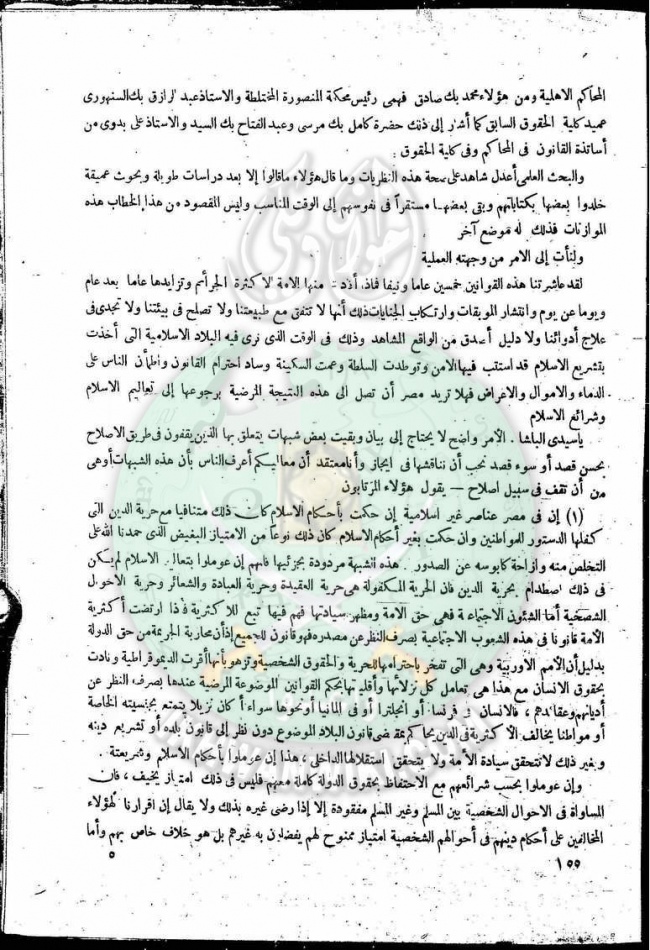 المحاكم الاهلية ومن هؤلاء محمد بك صادق فهمى رئيس محكمة المنصورة المختلطة والاستاذ عبد الرازق بك السنهورى
عميد كلية الحقوق السابق كما أشار إلى ذلك حضرة كامل بك مرسى وعبد الفتاح بك السيد والاستاذ على بدوى من
أساتذة القانون فى المحاكم وفى كلية الحقوق .
والبحث العلمى أعدل شاهد على صحة هذه النظريات وما قال هؤلاء ماقالوا إلا بعد دراسات طويلة وبحوث عميقة
خلدوا بعضها بكتاباتهم وبقى بعضها مستقراً فى نفوسهم إلى الوقت المناسب وليس المقصود من هذا الخطاب هذه
الموازنات فذلك له موضع آخر
ولنأت إلى الامر من وجهته العملية
لقد عاشرتنا هذه القوانين خمسين عاما ونيفا فماذا أفادت منها الامة إلا كثرة الجرائم وتزايدها عاما بعد عام
ويوما عن يوم وانتشار الموبقات وارتكاب الجنايات ذلك أنها لا تتفق مع طبيعتنا ولا تصلح فى بيئتنا ولا تجدى فى
علاج أدوائنا ولا دليل أصدق من الواقع المشاهد وذلك فى الوقت الذى نرى فيه البلاد الاسلامية التى أخذت
بتشريع الاسلام قد استتب فيها الامن وتوطدت السلطة وعمت السكينة وساد احترام القانون واطمأن الناس على
الدماء والاموال والاعراض فهلا تريد مصر أن تصل الى هذه النتيجة المرضية برجوعها إلى تعاليم الاسلام
وشرائع الاسلام
ياسيدى الباشا . الأمر واضح لا يحتاج إلى بيان وبقيت بعض شبهات يتعلق بها الذين يقفون فى طريق الاصلاح
بحسن قصد أو سوء قصد نحب أن نناقشها فى ايجاز وأنا معتقد أن معاليكم أعرف الناس بأن هذه الشبهات أوهى
من أن تقف فى سبيل اصلاح — يقول هؤلاء المرتابون
(١) إن فى مصر عناصر غير اسلامية إن حكمت بأحكام الاسلام كان ذلك متنافيا مع حرية الدين التى
كفلها الدستور للمواطنين وان حكمت بغير أحكام الاسلام كان ذلك نوعاً من الامتياز البغيض الذى حمدنا الله على
التخلص منه وازاحة كابوسه عن الصدور . هذه الشبهة مردودة بجزئيها فانهم إن عوملوا بتعاليم الاسلام لم يكن
فى ذلك اصطدام بحرية الدين فان الحرية المكفولة هى حرية العقيدة وحرية العبادة والشعائر وحرية الاحوال
الشخصية أما الشئون الاجتماعية فهى حق الامة ومظهر سيادتها فهم فيها تبع للاكثرية فاذا ارتضت أكثرية
الأمة قانونا فى هذه الشعوب الاجتماعية بصرف النظر عن مصدره فهو قانون للجميع إذ أن محاربة الجريمة من حق الدولة
بدليل أن الأمم الاوربية وهى التى تفخر باحترامها للحرية والحقوق الشخصية وتزهو بأنها أقرت الديموقراطية ونادت
بحقوق الانسان مع هذا هى تعامل كل نزلائها وأقلياتها بحكم القوانين الموضوعة المرضية عندها بصرف النظر عن
أديانهم وعقائدهم ، فالانسان فى فرنسا أو انجلترا أو فى المانيا أو نحوها سواء أكان نزيلا يتمتع بجنسيته الخاصة
أو مواطنا يخالف الأكثرية فى الدين يحاكم بمقتضى قانون البلاد الموضوع دون نظر إلى قانون بلده أو تشريع دينه
وبغير ذلك لا تتحقق سيادة الأمة ولا يتحقق استقلالها الداخلى ، هذا إن عوملوا بأحكام الاسلام وشريعته .
وإن عوملوا بحسب شرائعهم مع الاحتفاظ بحقوق الدولة كاملة معهم فليس فى ذلك امتياز يخيف ، فان
المساواة فى الاحوال الشخصية بين المسلم وغير المسلم مفقودة إلا إذا رضى غيره بذلك ولا يقال إن اقرارنا لهؤلاء
المخالفين على أحكام دينهم فى أحوالهم الشخصية امتياز ممنوح لهم يفضلون به غيرهم بل هو خلاف خاص بهم وأما
١٥٥